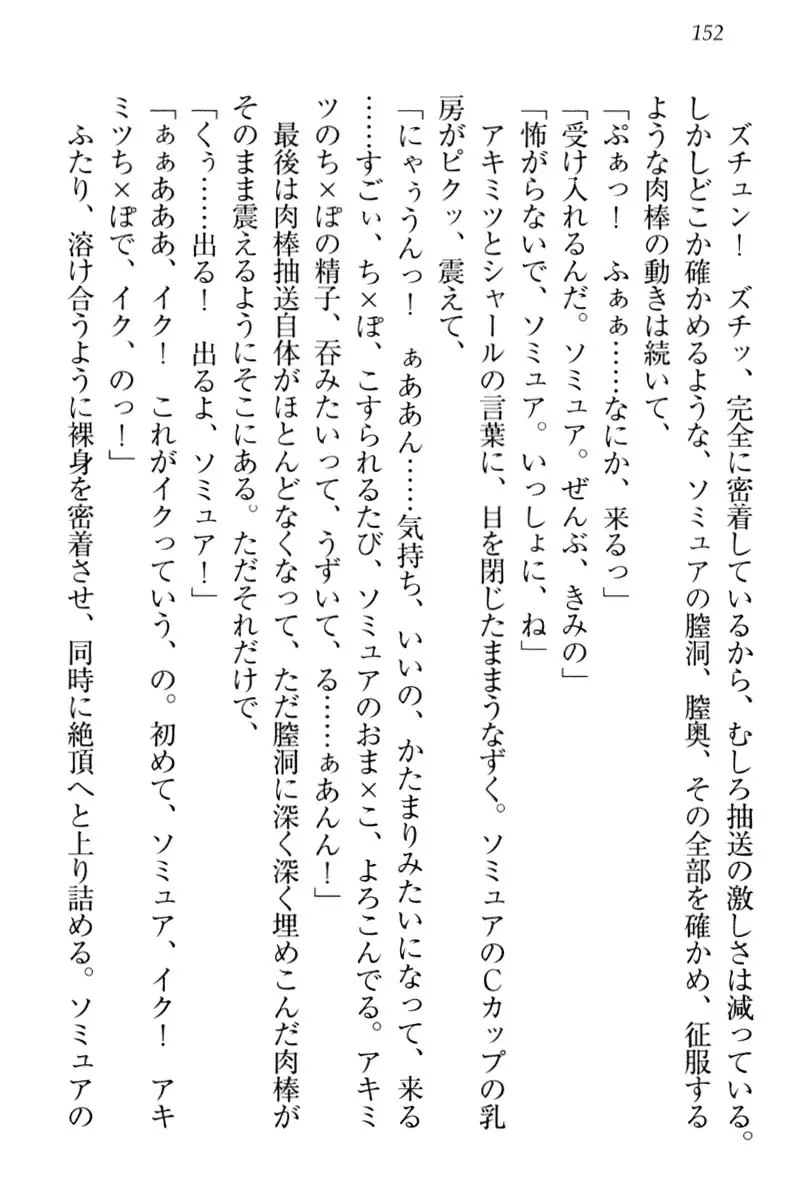 152
ズチュン！　ズチッ、完全に密着しているから、むしろ抽送の激しさは減っている。
しかしどこか確かめるような、ソミュアの膣洞、膣奥、その全部を確かめ、征服する
ような肉棒の動きは続いて、
「ぷぁっ！　ふぁぁ……なにか、来るっ」
「受け入れるんだ。ソミュア。ぜんぶ、きみの」
「怖がらないで、ソミュア。いっしょに、ね」
アキミツとシャールの言葉に、目を閉じたままうなずく。ソミュアのCカップの乳
房がピクッ、震えて、
「にゃぅうんっ！　ぁああん……気持ち、いいの、かたまりみたいになって、来る
……すごぃ、ち×ぽ、こすられるたび、ソミュアのおま×こ、よろこんでる。アキミ
ツのち×ぽの精子、呑みたいって、うずいて、る……ぁあんん！」
最後は肉棒抽送自体がほとんどなくなって、ただ膣洞に深く深く埋めこんだ肉棒が
そのまま震えるようにそこにある。ただそれだけで、
「くぅ……出る！　出るよ、ソミュア！」
「ぁぁあああ、イク！　これがイクっていう、の。初めて、ソミュア、イク！　アキ
ミツち×ぽで、イク、のっ！」
ふたり、溶け合うように裸身を密着させ、同時に絶頂へと上り詰める。ソミュアの